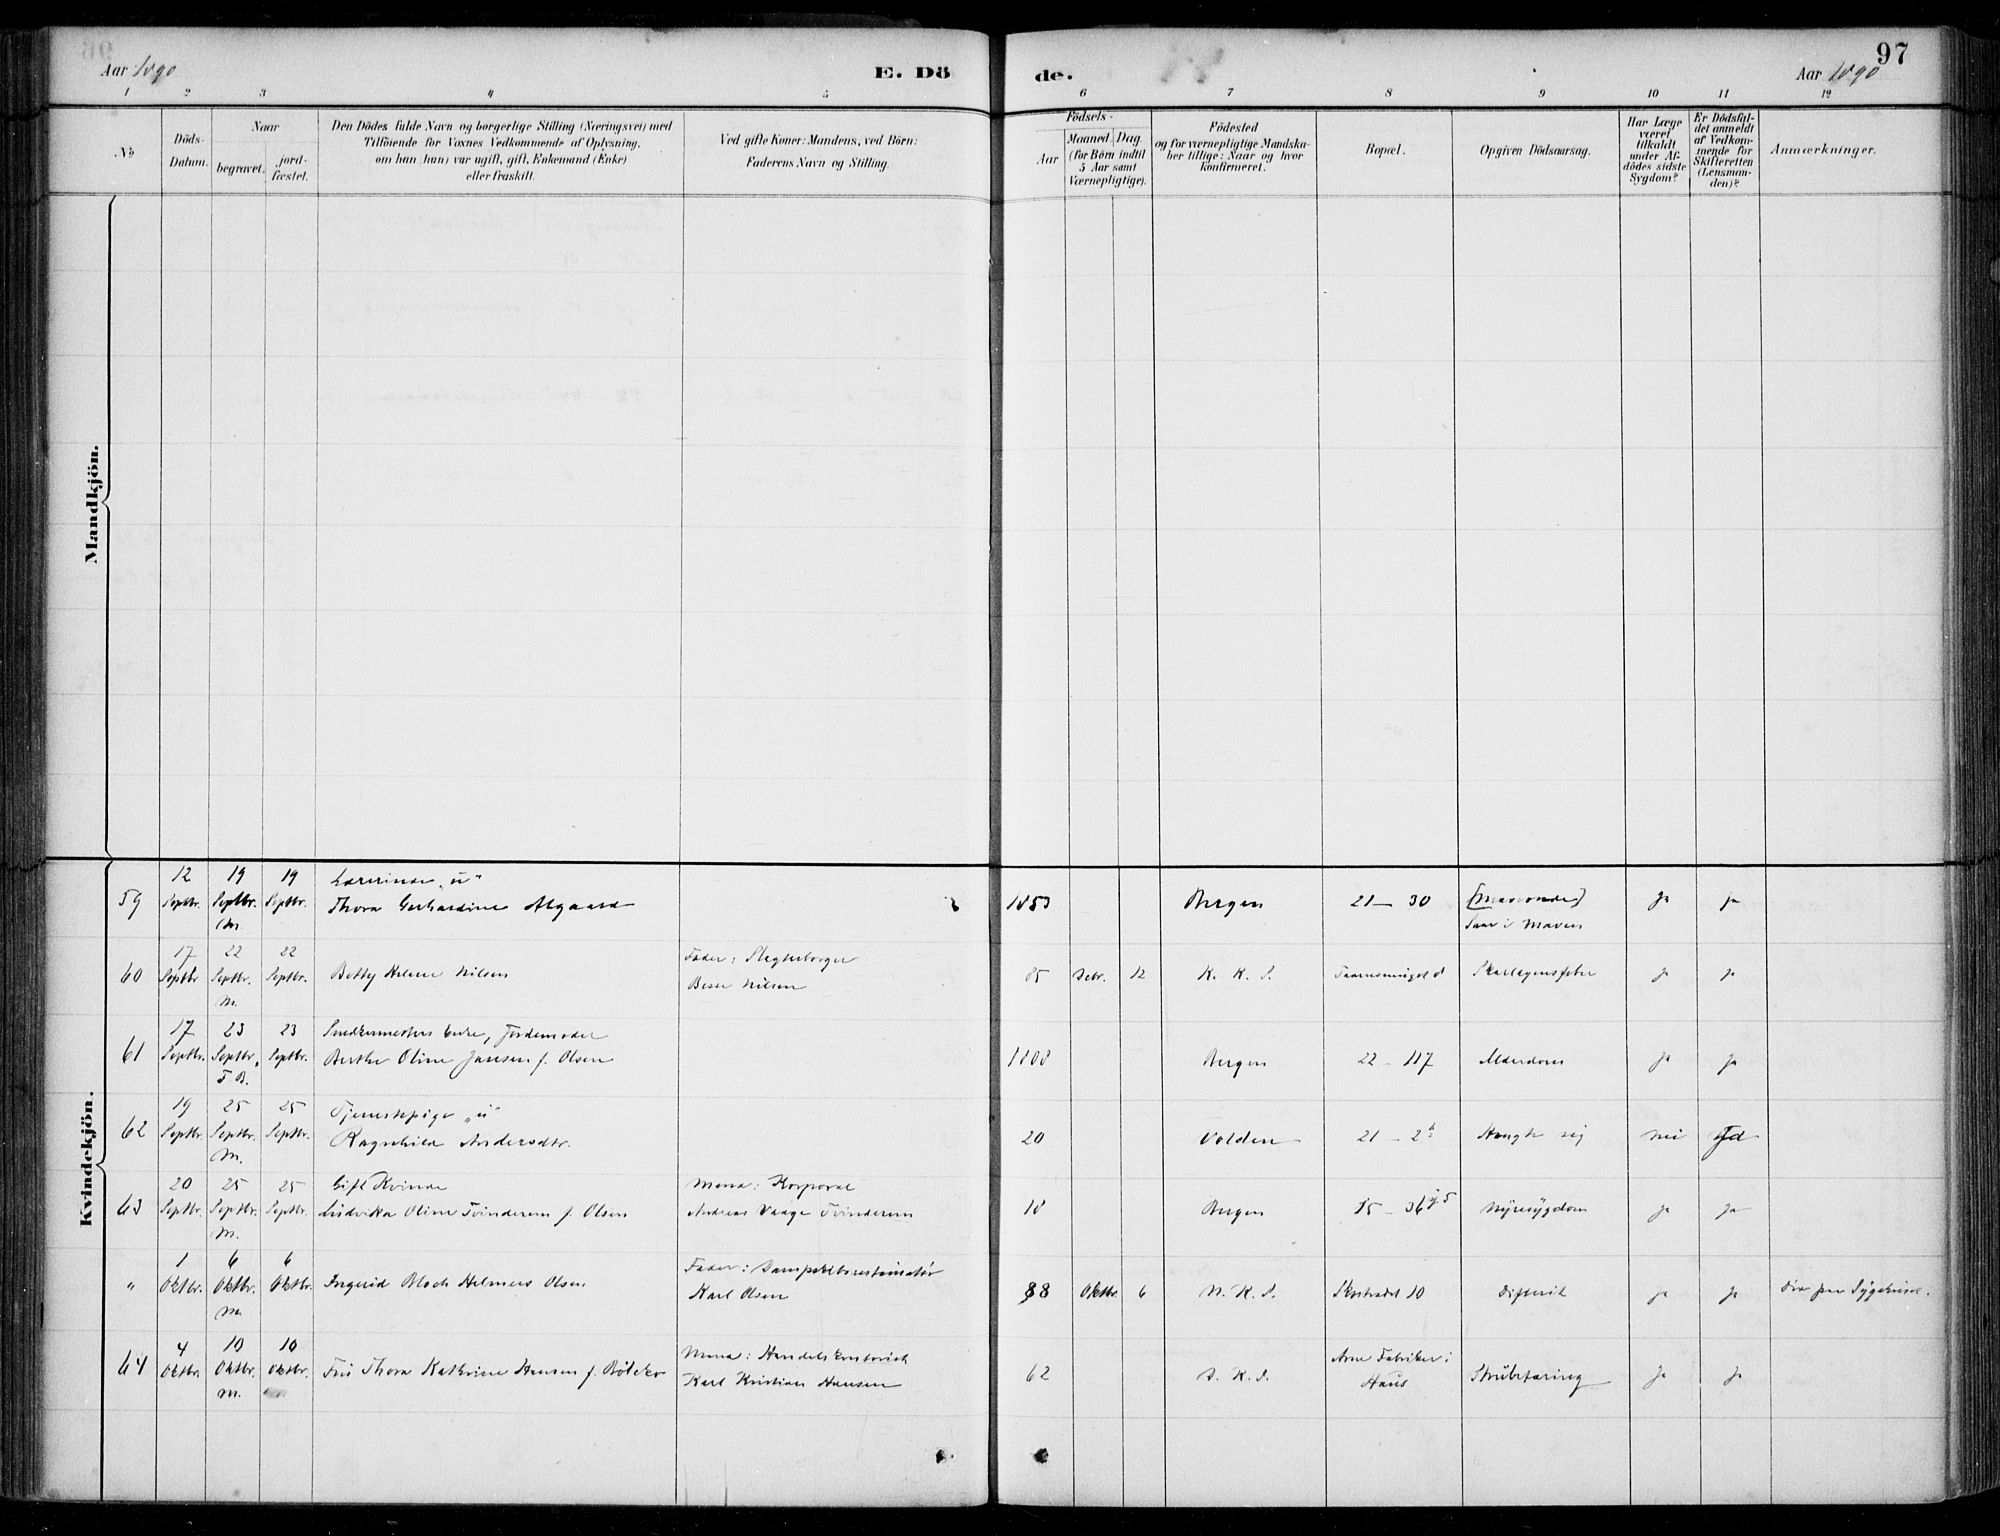 Aar 1890
E. Dö
de.
97
Aar 1890
1 2 3 4 5 6 7 8 9 10 11 12
No
Döds-Datum.
Naar
begravet.
jord-fæstet.
Den Dödes fulde Navn og borgerlige Stilling (Næringsvei) med
Tilföiende for Voxnes Vedkommende af Oplysning,
om han (hun) var ugift, gift, Enkemand (Enke)
eller fraskilt.
Ved gifte Koner: Mandens, ved Börn:
Faderens Navn og Stilling.
Födsels-
Aar
Maaned Dag.
(for Börn indtil
5 Aar samt
Værnepligtige).
Födested
og for værnepligtige Mandska-
ber tillige: Naar og hvor
konfirmeret.
Bopæl.
Opgiven Dödsaarsag.
Har Læge
været
tilkaldt
under Af-
dödes sidste
Sygdom?
Er Dödsfal-
det anmeldt
af Vedkom-
mende for
Skifteretten
(Lensman-
den)?
Anmærkninger.
Mandkjön.
Kvindekjön.
59 12 Septbr. 19 Septbr. M. 19 Septbr.
Lærerinde „u“
Thora Gerhardine Algaard
1853 Bergen 21 – 30
Saar i Maven ja ja
60 17 Septbr 22 Septbr. M. 22 Septbr.
Betty Helene Nilsen
Fader: Slagterborger
Besse Nilsen
85 Debr. 12 K. K. S. Skarlagensfeber ja ja
61 17 Septbr. 23 Septbr. 23 Septbr.
Snedkermesters Enke, Jordemoder
Berthe Oline Jansen f. Olsen
1808 Bergen 22 – 117 Alderdom ja ja
62 19 Septbr. 25 Septbr. M. 25 Septbr.
Tjenestepige „u“
Ragnhild Andersdtr.
20 Volden Hængte sig nei
63 20 Septbr. 25 Septbr. M. 25 Septbr.
Gift Kvinde
Ludvikka Oline Tvinderem f. Olsen
Mand: Korporal
Andreas Vaage Tvinderem
18 Bergen Nyresygdom ja ja
" 1 Oktbr. 6 Oktbr. M. 6 Oktbr.
Ingerid Bloch Helmers Olsen
Fader:
Karl Olsen
88 Oktbr. 6 N. K. S. Skostrædet 10 Difterit ja ja Död paa Sygehuset.
64 4 Oktbr 10 Oktbr. M. 10 Oktbr.
Fru Thora Kathrine Hansen f. Bölcker
Mand: Handelskontorist
Karl Kristian Hansen
62 D. K. S.
Arne Fabriker i
Haus
Strubetæring ja ja